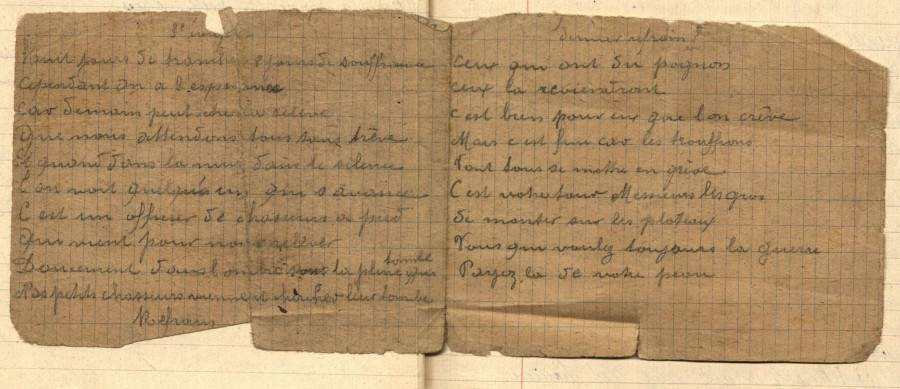 3e couplet
Huit jours de tranchées 8 jours de souffrance
cependant on a l'espérance
car demain peut etre la relève
que nous attendons tous sans trève
et quand dans la nuit dans le silence
L on voit quelqu'un qui s avance
C est un officier de chasseurs a pied
qui vient pour nous relever
Doucement dans l ombre sous la pluie qui tombe
Nos petits chasseurs viennent chercher leur tombe
Refrain
dernier refrain
ceux qui ont du pognon
ceux la reviendront
c est bien pour eux que l on crève
Mais c est fini car les trouffions
Vont tous se mettre en grève
C est votre tour Messieurs les gros
de monter sur les plateaux
Vous qui voulez toujours la guerre
Payez la de votre peau